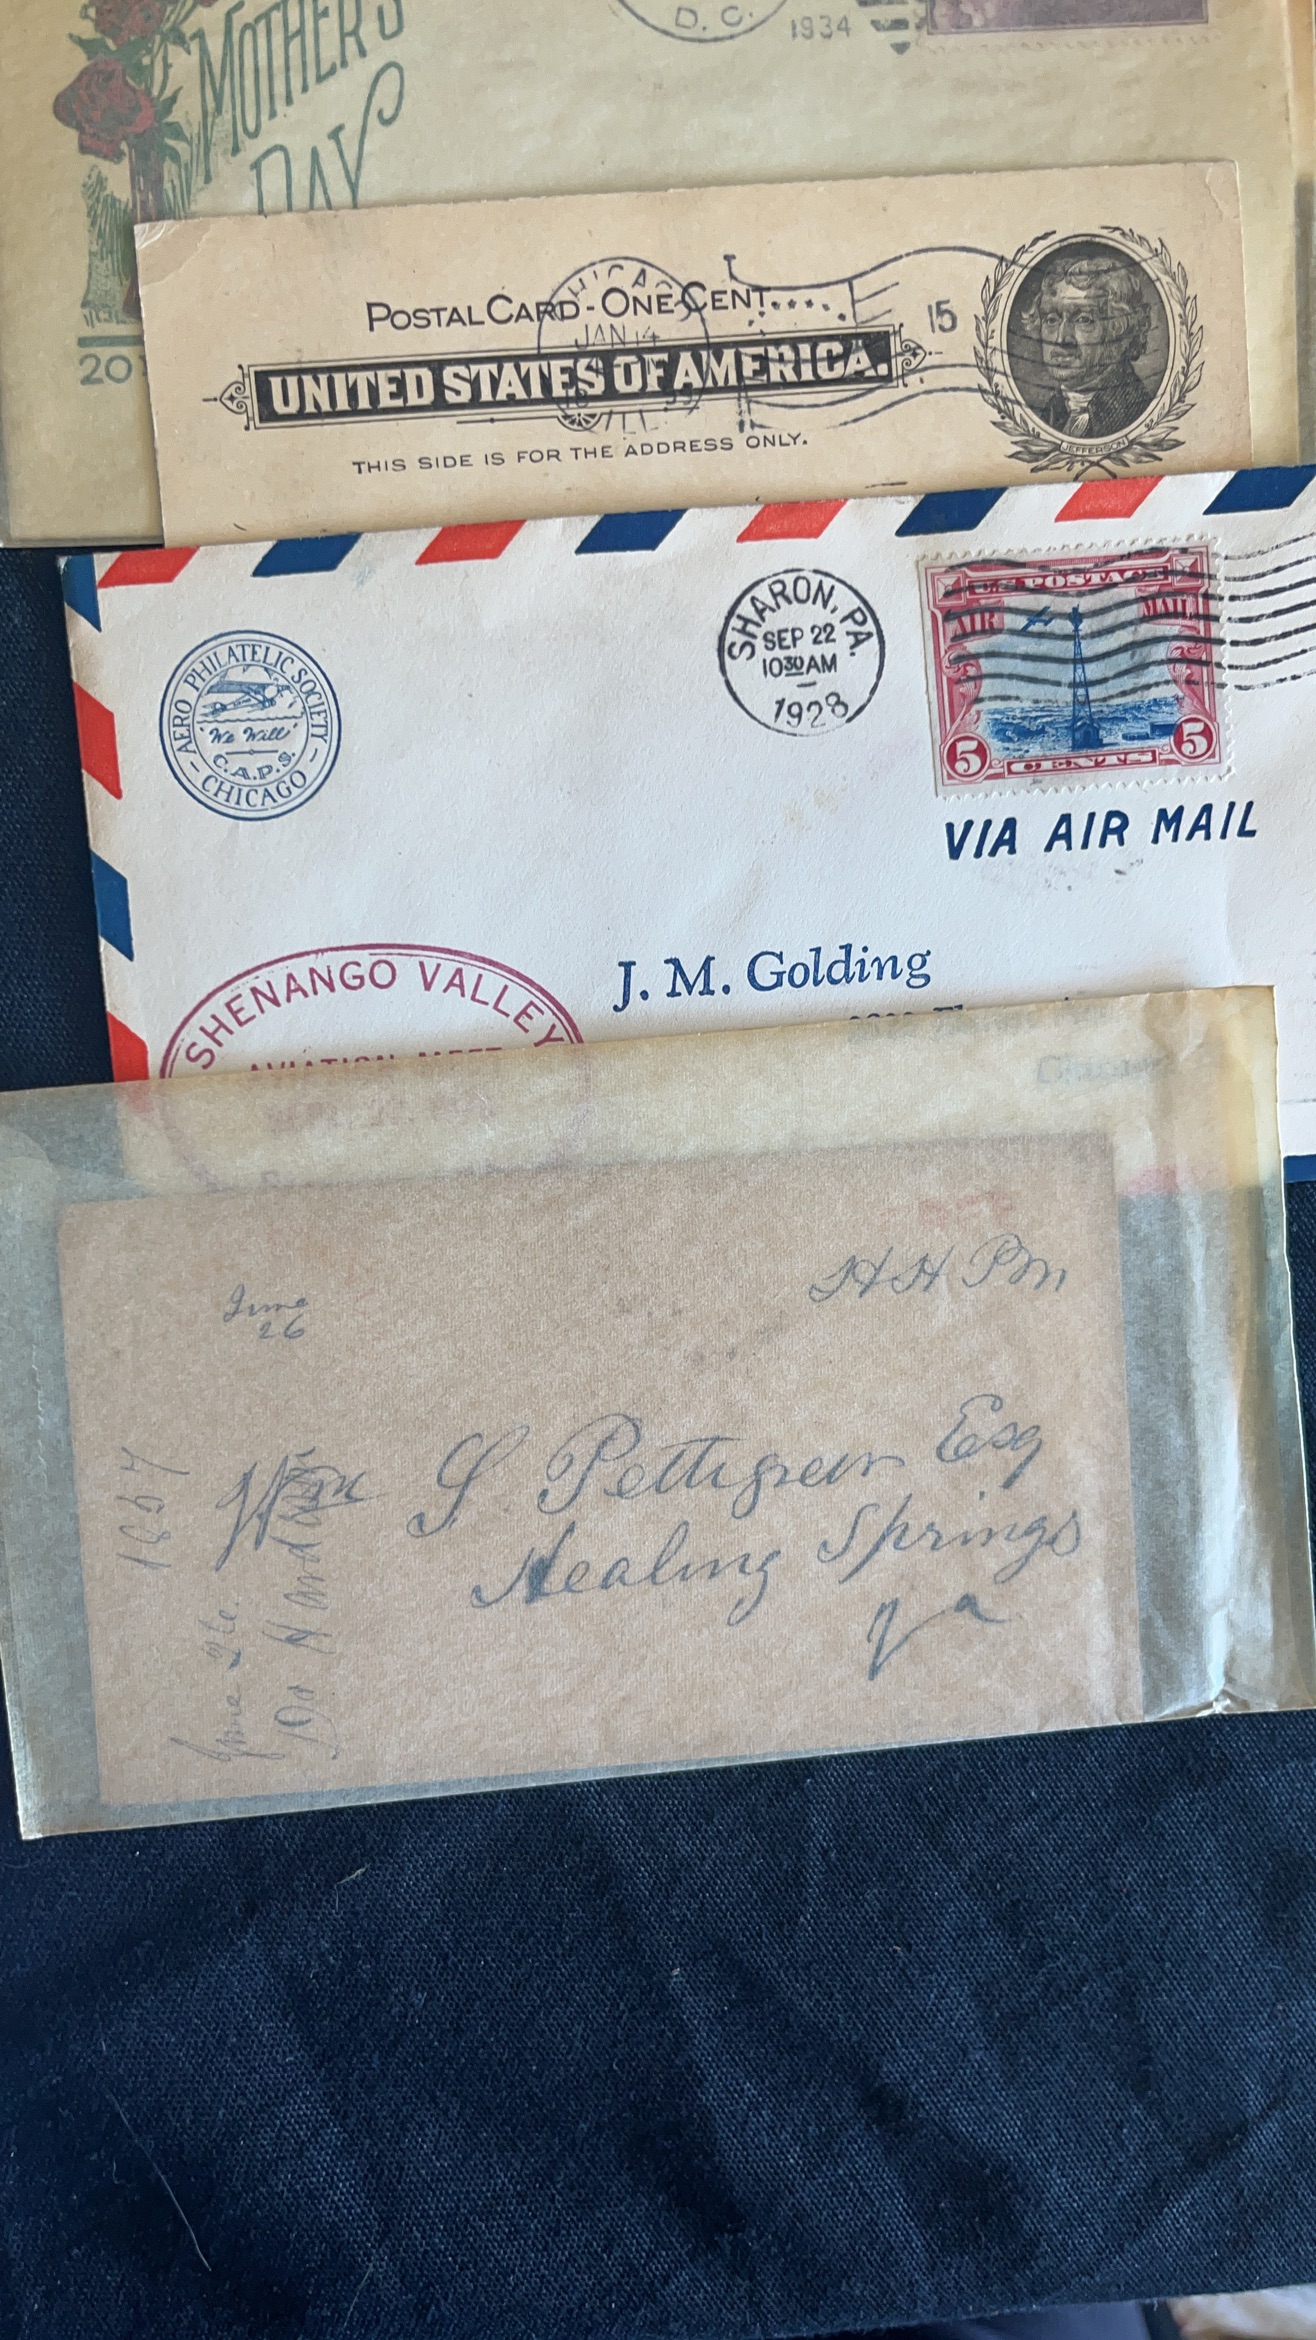 D. C.
1934
MOTHER'S
DAY
20
POSTAL CARD - ONE CENT.
CHICAGO
JAN 14
ILL.
15
UNITED STATES OF AMERICA.
THIS SIDE IS FOR THE ADDRESS ONLY.
JEFFERSON
AERO PHILATELIC SOCIETY
"We Will"
C.A.P.S.
- CHICAGO -
SHARON, PA.
SEP 22
10 30 AM
1928
U.S. POSTAGE
AIR MAIL
5 CENTS 5
VIA AIR MAIL
J. M. Golding
SHENANGO VALLEY
AVIATION MEET
June
26
H H PM
Wm S Pettigrew Esq
Healing Springs
Va
1857
June 26.
Dr